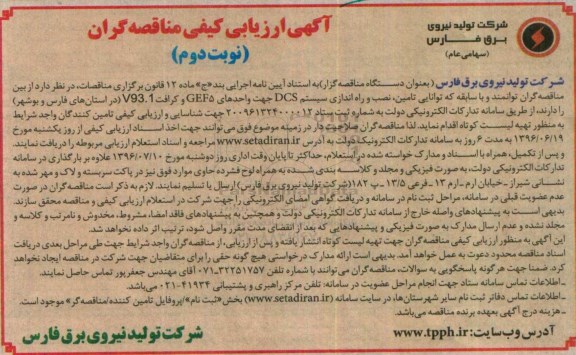 شرکت تولید نیروی
برق فارس
(سهامی عام)
آگهی ارزیابی کیفی مناقصه گران
(نوبت دوم)
شرکت تولید نیروی برق فارس (بعنوان دستگاه مناقصه گزار) به استناد آیین نامه اجرایی بند «ج» ماده ۱۲ قانون برگزاری مناقصات، در نظر دارد از بین
مناقصه گران توانمند و با سابقه که توانایی تامین، نصب و راه اندازی سیستم DCS جهت واحدهای GEF5 و کرافت V93.1 (در استان‌های فارس و بوشهر)
را دارند، از طریق سامانه تدارکات الکترونیکی دولت به شماره ثبت ستاد ۲۰۰۹۶۱۳۲۴۰۰۰۰۱۲ جهت شناسایی و ارزیابی کیفی تامین کنندگان واجد شرایط
به منظور تهیه لیست کوتاه اقدام نماید. لذا مناقصه گران صلاحیت دار در زمینه موضوع فوق می توانند جهت اخذ اسناد ارزیابی کیفی از روز یکشنبه مورخ
۱۳۹۶/۰۶/۱۹ به مدت ۶ روز به سامانه تدارکات الکترونیکی دولت به آدرس www.setadiran.ir مراجعه و اسناد استعلام ارزیابی مربوطه را دریافت نمایند.
و پس از تکمیل، همراه با اسناد و مدارک خواسته شده در استعلام، حداکثر تا پایان وقت اداری روز دوشنبه مورخ ۱۳۹۶/۰۷/۱۰ علاوه بر بارگذاری در سامانه
تدارکات الکترونیکی دولت، به صورت فیزیکی و مجلد و کلاسه بندی شده به همراه لوح فشرده حاوی موارد فوق نیز در پاکت سربسته و لاک و مهر شده به
نشانی شیراز - خیابان ارم - ارم ۱۳ - فرعی ۱۳/۵ - پ ۱۸۲ (شرکت تولید نیروی برق فارس) ارسال یا تسلیم نمایند. لازم به ذکر است مناقصه گران در صورت
عدم عضویت قبلی در سامانه، مراحل ثبت نام در سامانه و دریافت گواهی امضای الکترونیکی را جهت شرکت در استعلام ارزیابی کیفی و مناقصه محقق سازند.
بدیهی است به پیشنهادهای واصله خارج از سامانه تدارکات الکترونیکی دولت و همچنین به پیشنهادهای فاقد امضا، مشروط، مخدوش و نامرتب و کلاسه و
مجلد نشده و عدم ارسال مدارک به صورت فیزیکی و پیشنهادهایی که بعد از انقضای مدت مقرر واصل شود، ترتیب اثر داده نخواهد شد.
این آگهی به منظور ارزیابی کیفی مناقصه گران جهت تهیه لیست کوتاه انتشار یافته و پس از ارزیابی، از مناقصه گران واجد شرایط جهت طی مراحل بعدی دریافت
اسناد مناقصه محدود دعوت به عمل خواهد آمد. بدیهی است ارائه مدارک درخواستی هیچ گونه حقی را برای متقاضیان جهت شرکت در مناقصه ایجاد نخواهد
کرد. ضمنا جهت هر گونه پاسخگویی به سوالات، مناقصه گران می توانند با شماره تلفن ۳۲۲۵۱۷۵۷-۰۷۱ آقای مهندس جعفرپور تماس حاصل نمایند.
- اطلاعات تماس سامانه ستاد جهت انجام مراحل عضویت در سامانه: تلفن مرکز راهبری و پشتیبانی ۴۱۹۳۴-۰۲۱ می‌باشد.
- اطلاعات تماس دفاتر ثبت نام سایر شهرستان‌ها، در سایت سامانه (www.setadiran.ir) بخش «ثبت نام»/پروفایل تامین کننده/مناقصه‌گر» موجود است.
- هزینه درج آگهی بعهده برنده مناقصه می‌باشد.
آدرس وب سایت: www.tpph.ir
شرکت تولید نیروی برق فارس